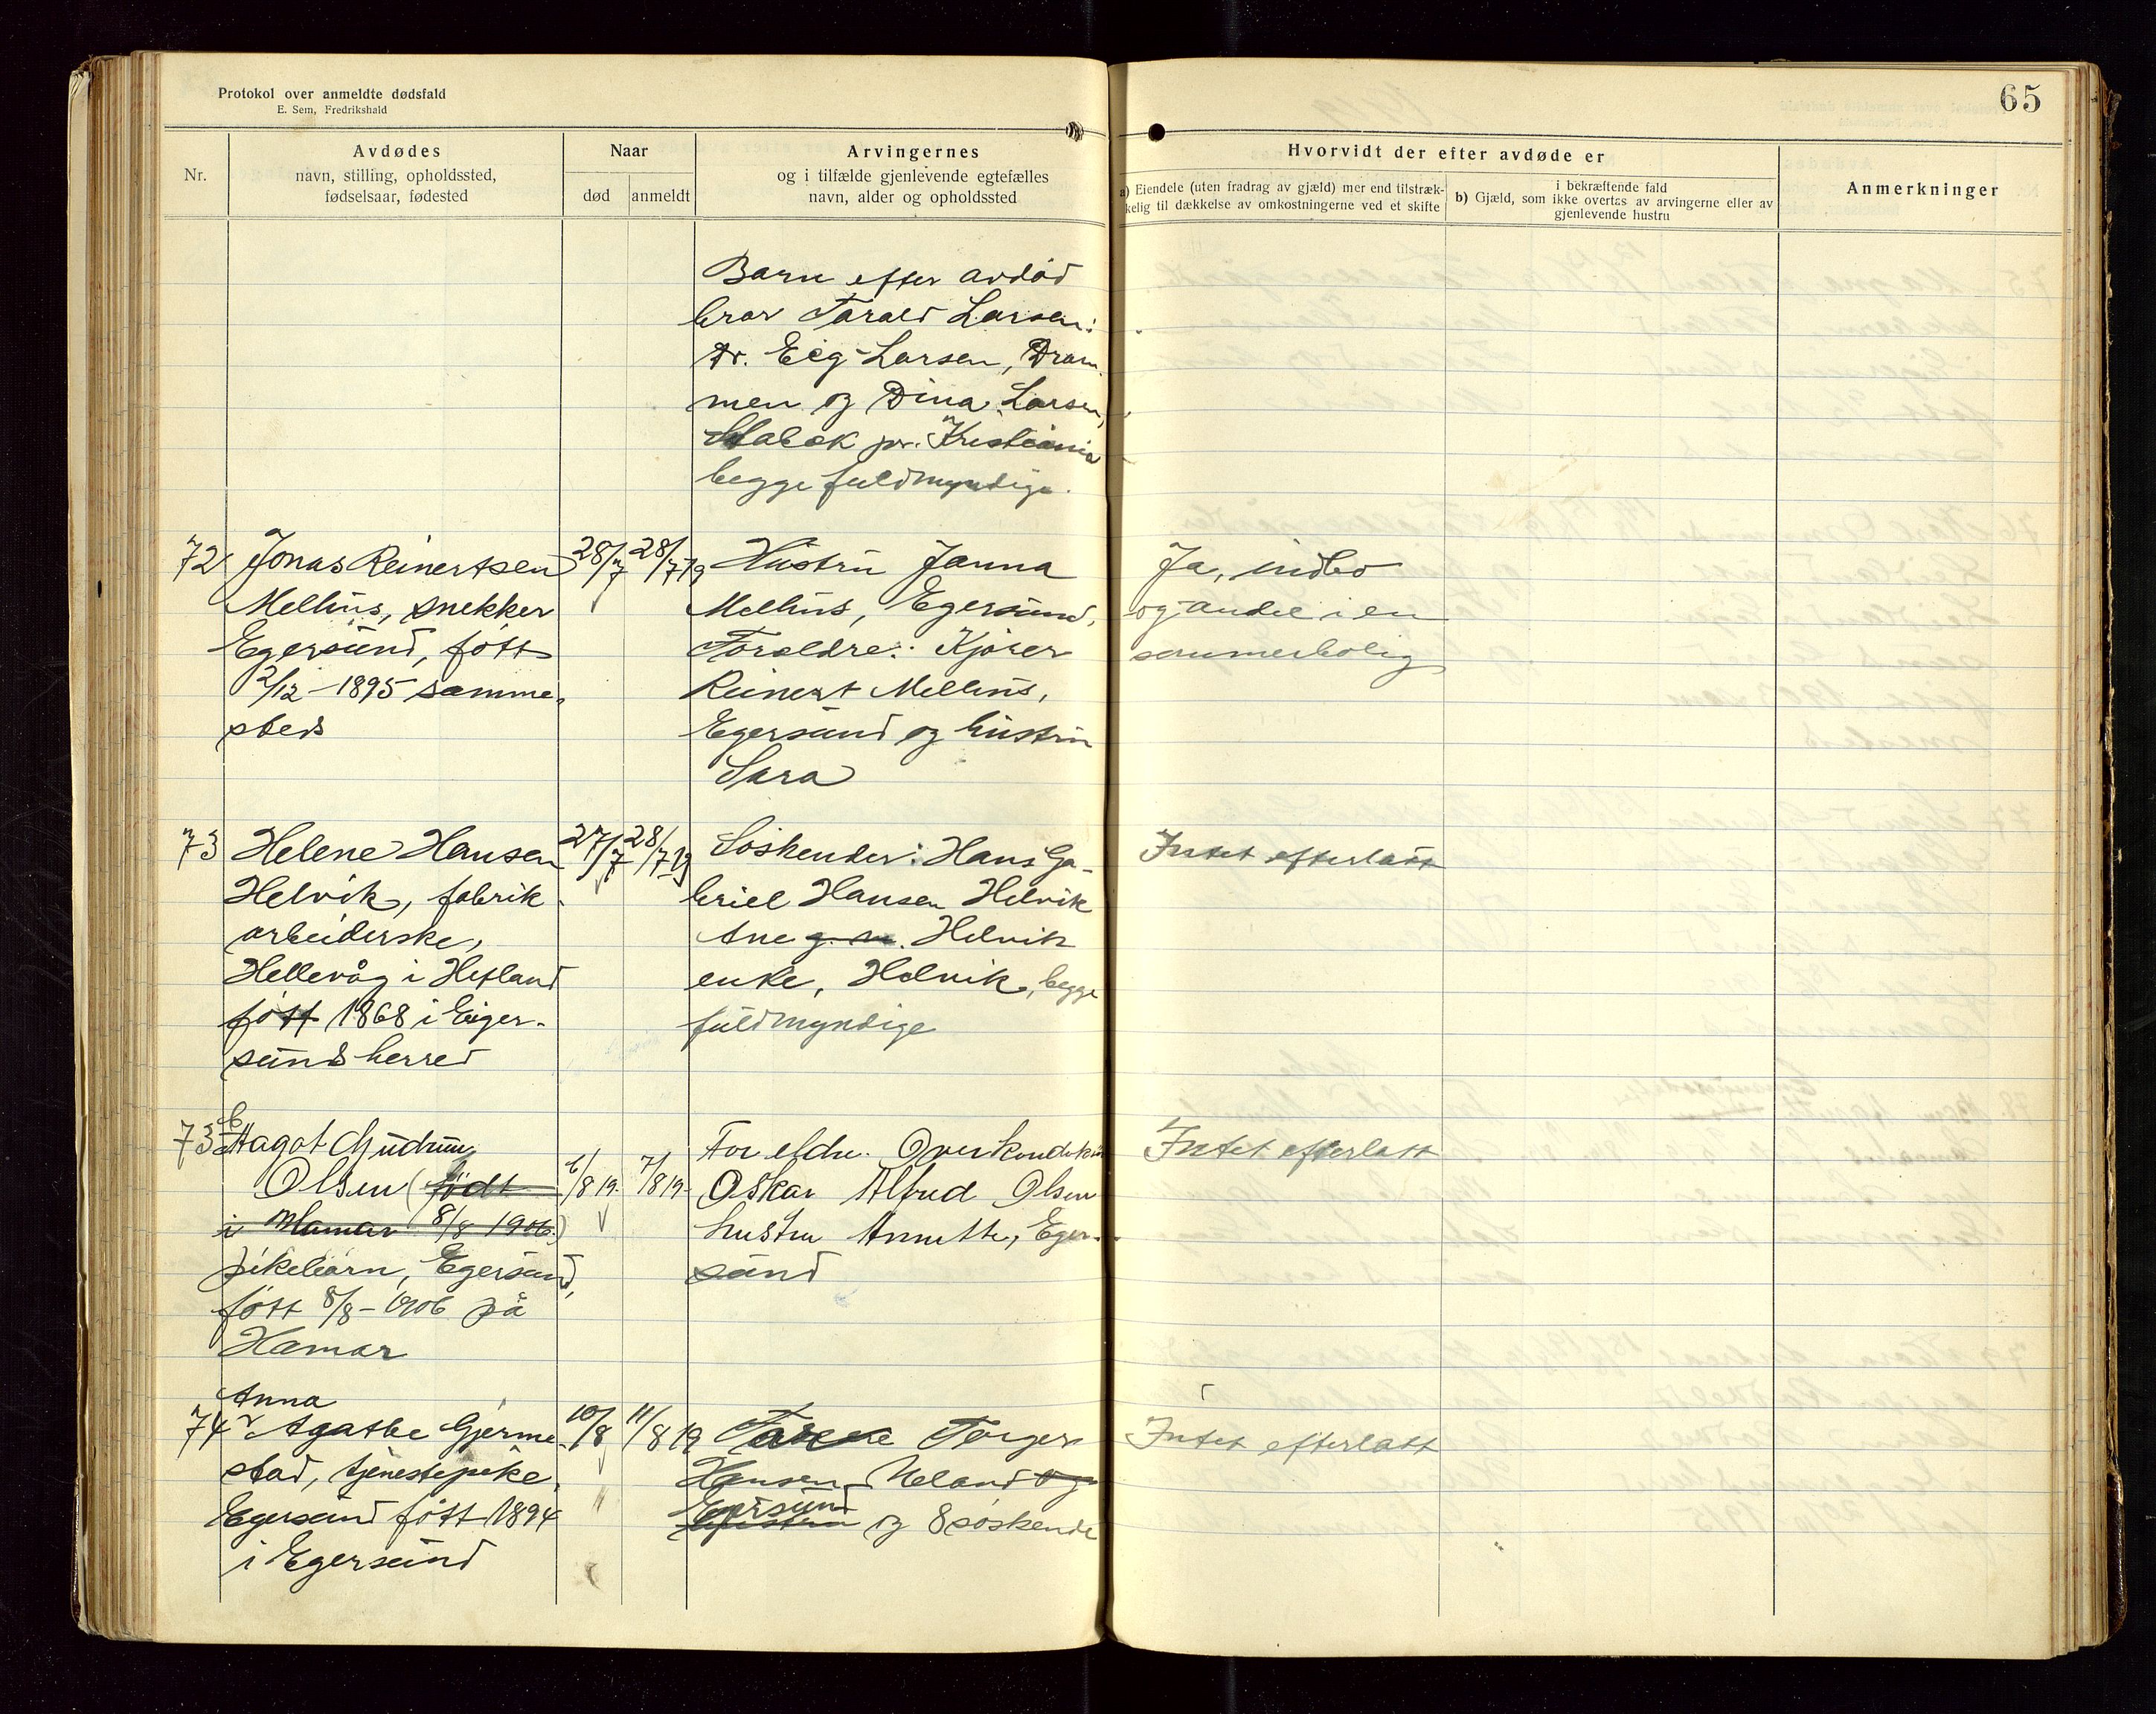 Protokol over anmeldte dødsfald
E. Sem, Fredrikshald
65
Nr.
Avdødes
navn, stilling, opholdssted,
fødselsaar, fødested
Naar
død
anmeldt
Arvingernes
og i tilfælde gjenlevende egtefælles
navn, alder og opholdssted
Hvorvidt der efter avdøde er
a) Eiendele (uten fradrag av gjæld) mer end tilstræk-
kelig til dækkelse av omkostningerne ved et skifte
i bekræftende fald
b) Gjæld, som ikke overtas av arvingerne eller av
gjenlevende hustru
Anmerkninger
Barn efter avdød
bror Tarald Larsen:
Dr. Eeg-Larsen, Dram-
men og Dina Larsen,
Stabæk pr. Kristiania
begge fuldmyndige.
72
Jonas Reinertsen
Mellius, snekker
Egersund, født
2/12-1895 samme-
steds
28/7
28/7 19
Hustru Janna
Mellius, Egersund,
Forældre: Kjører
Reinert Mellius,
Egersund og hustru
Sara
Ja, indbo
og andel i en
sommerbolig
73
Helene Hansen
Helvik, fabrik-
arbeiderske,
Hellevåg i Hetland
født 1868 i Eiger-
sunds herred
27/7
28/7 19
Søskender: Hans Ga-
briel Hansen Helvik
Ane g. m. Helvik
enke, Helvik, begge
fuldmyndige
Intet efterlatt
73b
Aagot Gudrun
Olsen (født
i Hamar 8/8 1906.)
pikebarn, Egersund,
født 8/8-1906 på
Hamar
6/8 19.
7/8 19.
Foreldre. Overkonduktør
Oskar Alfred Olsen
hustru Annette, Eger-
sund
Intet efterlatt
74
Anna
Agathe Gjerme-
stad, tjenestepike,
Egersund født 1894
i Egersund
10/8
11/8 19
Torger
Hansen Ueland og
Egersund
hustru og 8 søskende
Intet efterlatt